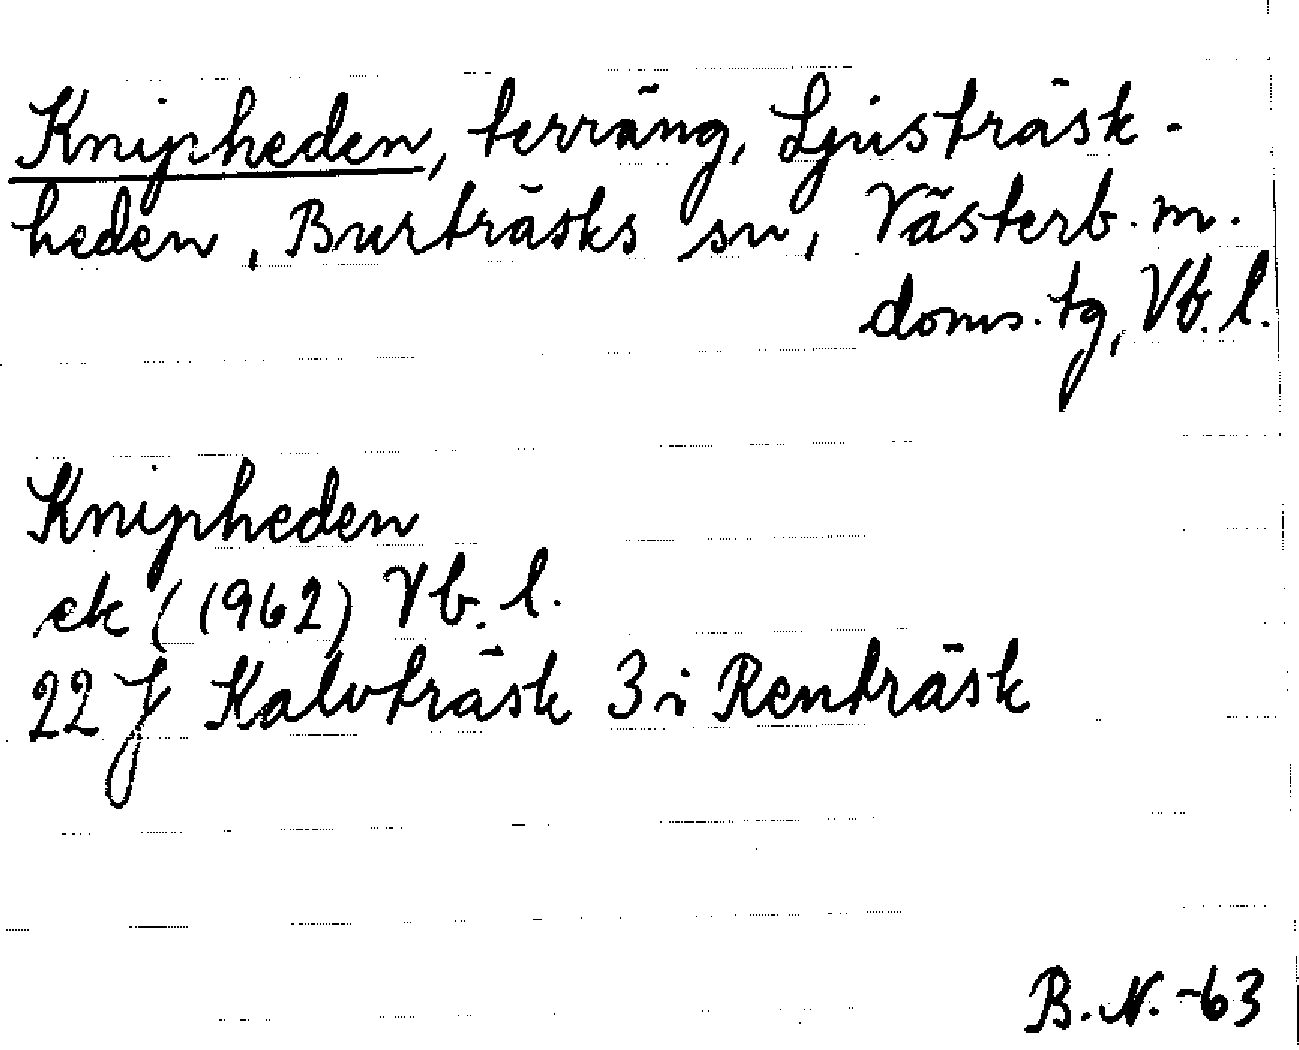 Knipheden, terräng, Ljusträsk-
heden, Burträsks sn, Västerb. m.
doms. tg, Vb. l.
Knipheden
ek (1962) Vb. l.
22 J Kalvträsk 3 i Renträsk
B. N. -63